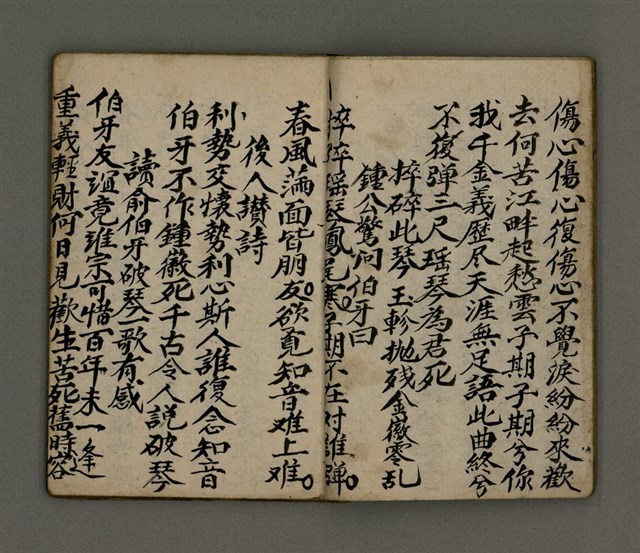 傷心傷心復傷心不覺淚紛紛來歡
去何苦江畔起愁雲子期子期兮你
我千金義歷尽天涯無足語此曲終兮
不復弹三尺瑶琴為君死
捽碎此琴玉軫抛残金徽零乱
鍾公驚问伯牙曰
捽碎瑶琴鳳尾寒子期不在对誰弹。
春風滿面皆朋友。欲覓知音难上难。
後人讃詩
利势交懐势利心斯人誰復念知音
伯牙不作鍾徽死千古令人説破琴
讀俞伯牙破琴一歌有感
伯牙友誼竟誰宗可惜百年未一逢
重義輕財何日見歡生苦死舊時容